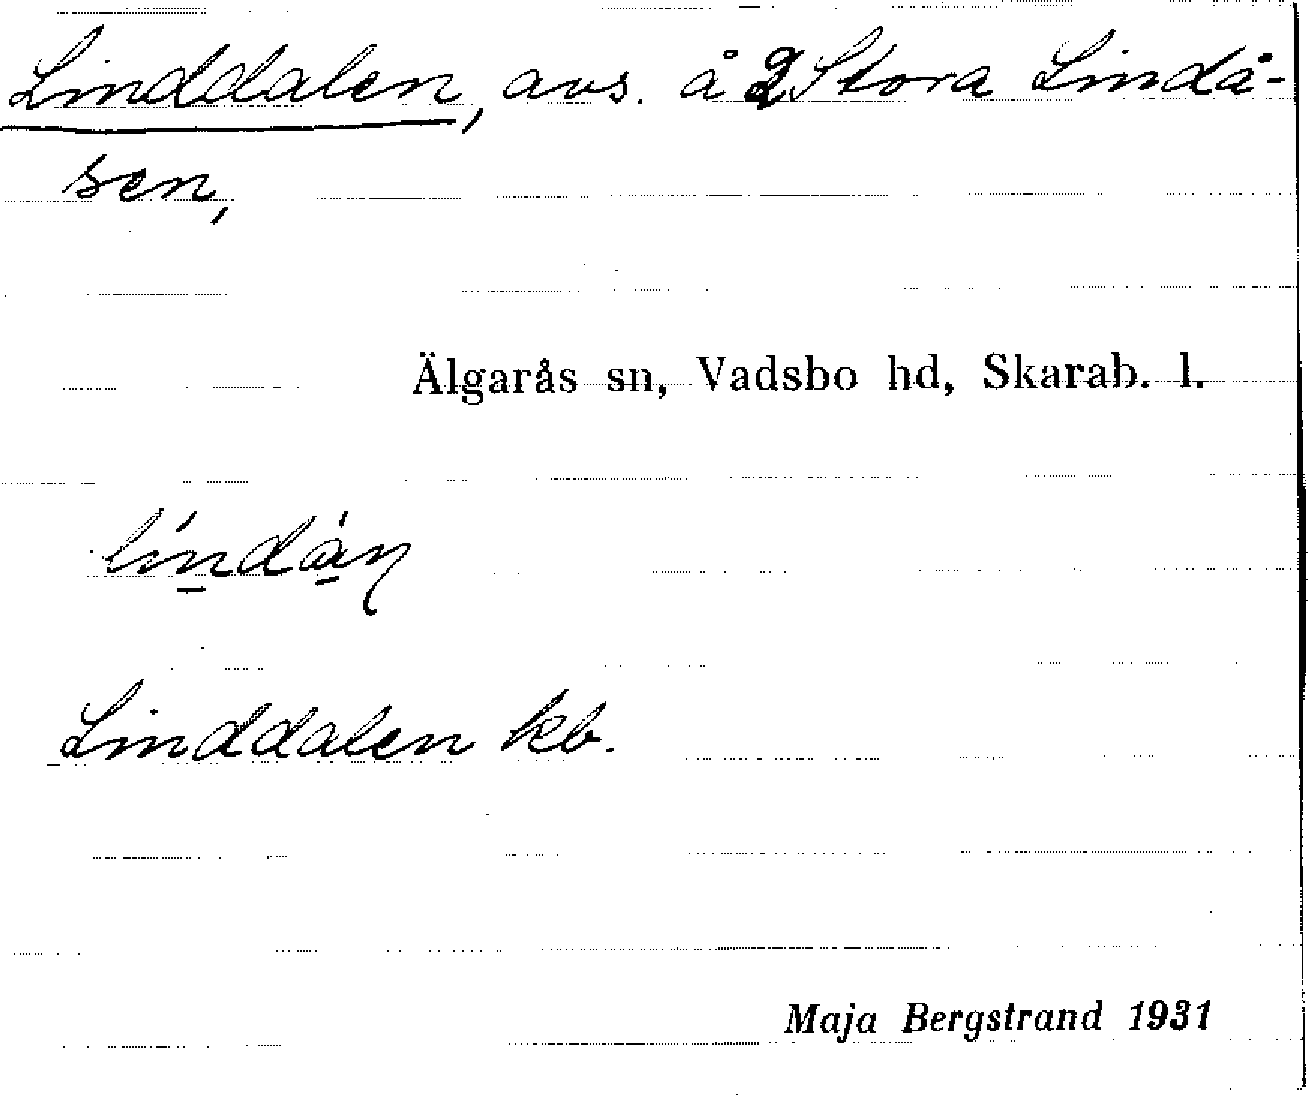 Linddalen, avs. å 2 Stora Lindå-
sen,
Älgarås sn, Vadsbo hd, Skarab. l.
Linddalen kb.
Maja Bergstrand 1931